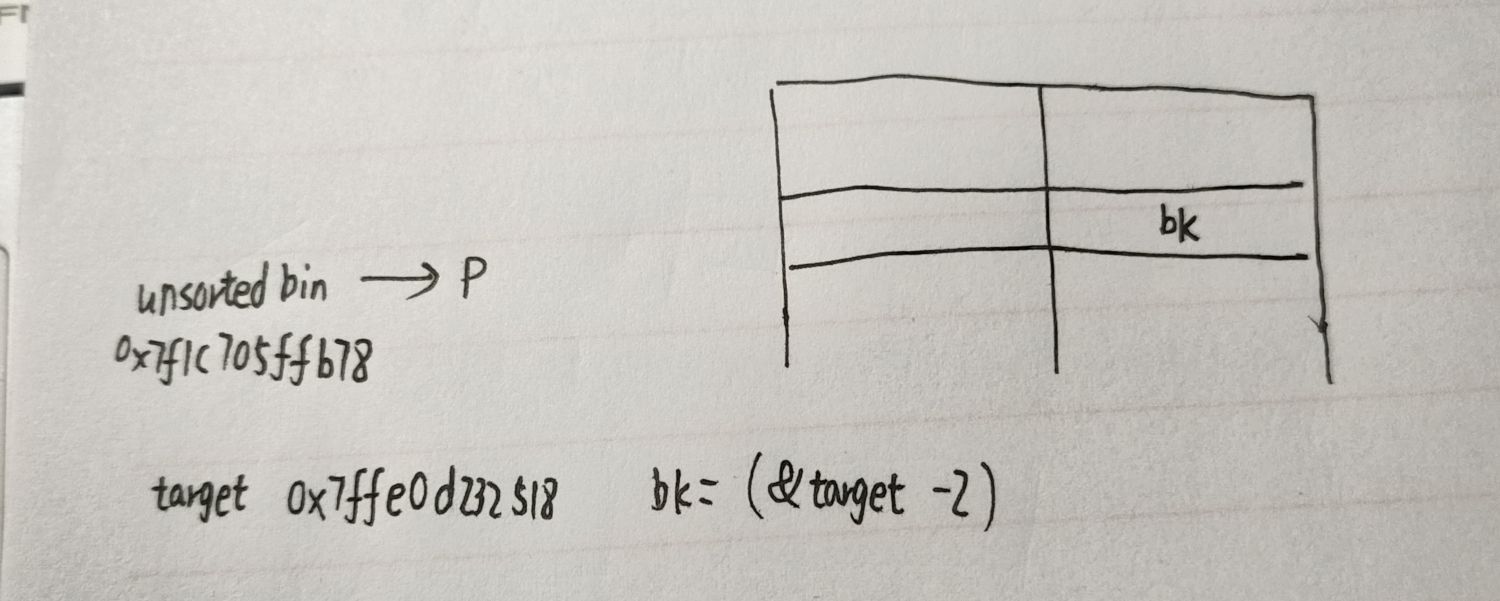 bk
unsorted bin → P
0x7f1c705ffb78
target 0x7ffe0d232518 bk= (&target -2)